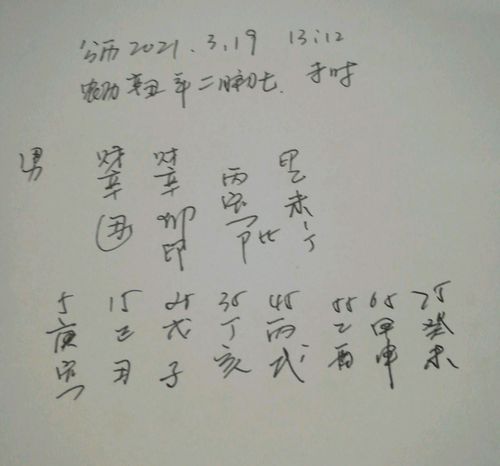 公历 2021.3.19 13:12
农历 辛丑年二月初七 时
男 财 财
辛 辛 丙
丑 卯 寅 未
印 比 丁
5 15 25 35 45 55 65 75
庚 己 戊 丁 丙 乙 甲 癸
寅 丑 子 亥 戌 酉 申 未